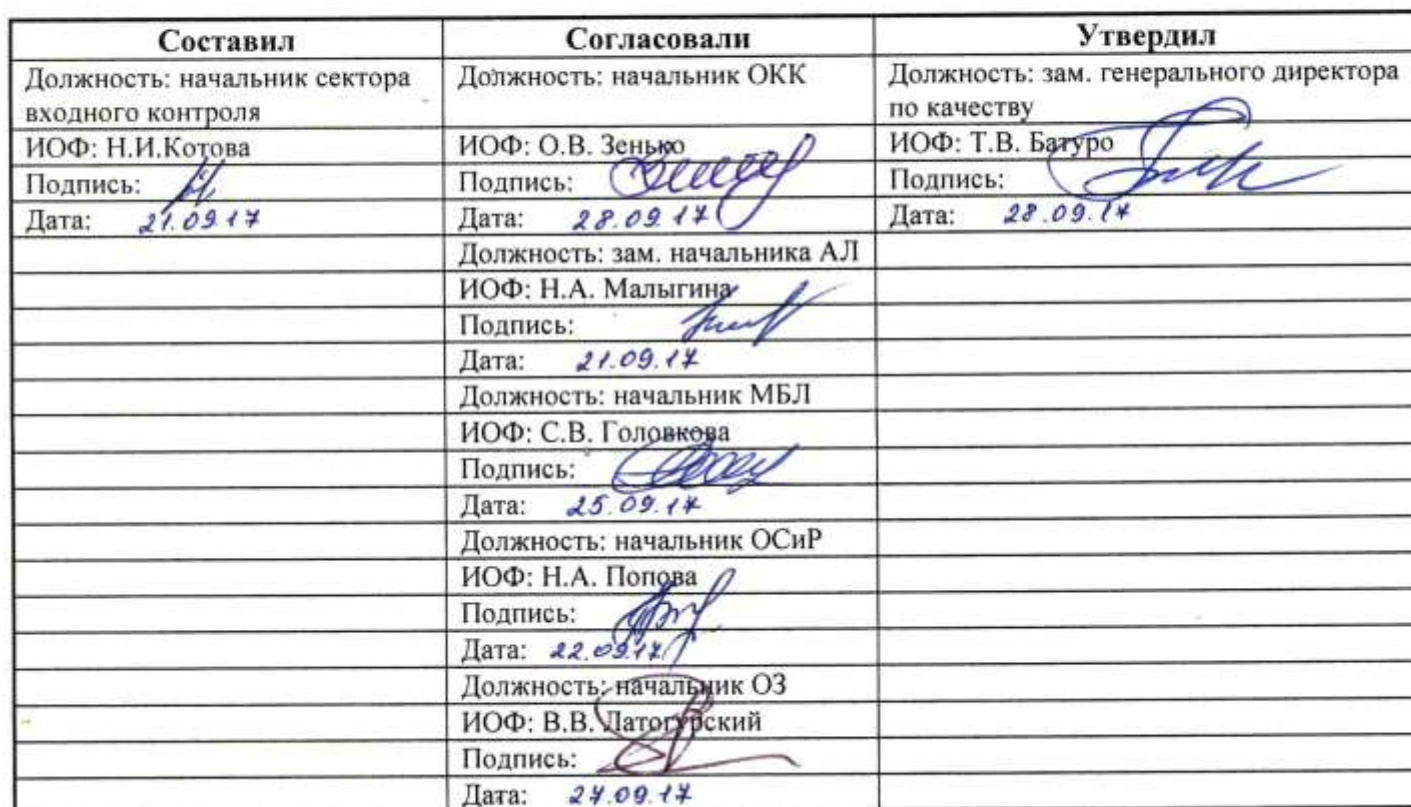 Составил
Согласовали
Утвердил
Должность: начальник сектора
входного контроля
Должность: начальник ОКК
Должность: зам. генерального директора
по качеству
ИОФ: Н.И.Котова
ИОФ: О.В. Зенько
ИОФ: Т.В. Батуро
Подпись:
Подпись:
Подпись:
Дата: 21.09.17
Дата: 28.09.17
Дата: 28.09.17
Должность: зам. начальника АЛ
ИОФ: Н.А. Малыгина
Подпись:
Дата: 21.09.17
Должность: начальник МБЛ
ИОФ: С.В. Головкова
Подпись:
Дата: 25.09.17
Должность: начальник ОСиР
ИОФ: Н.А. Попова
Подпись:
Дата: 22.09.17
Должность: начальник ОЗ
ИОФ: В.В. Латогурский
Подпись:
Дата: 27.09.17